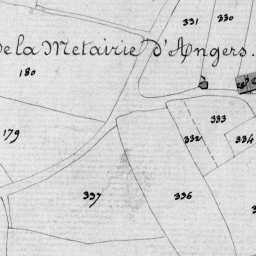 331 330
de la Metairie d'Angers.
180
333
179
332
334
337
336